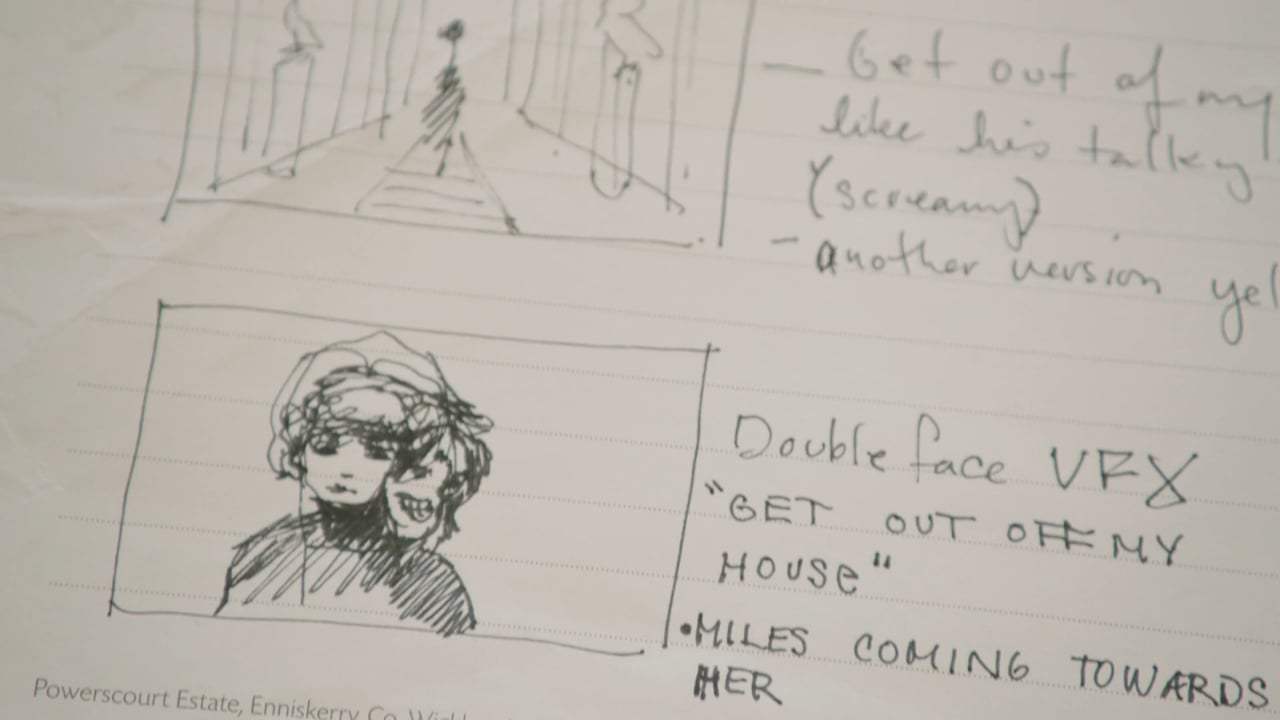 — Get out of my
like his talky
(screamy)
- another version yel
Double face VFX
"GET OUT OFF MY
HOUSE"
•MILES COMING TOWARDS
HER
Powerscourt Estate, Enniskerry, Co. Wickl